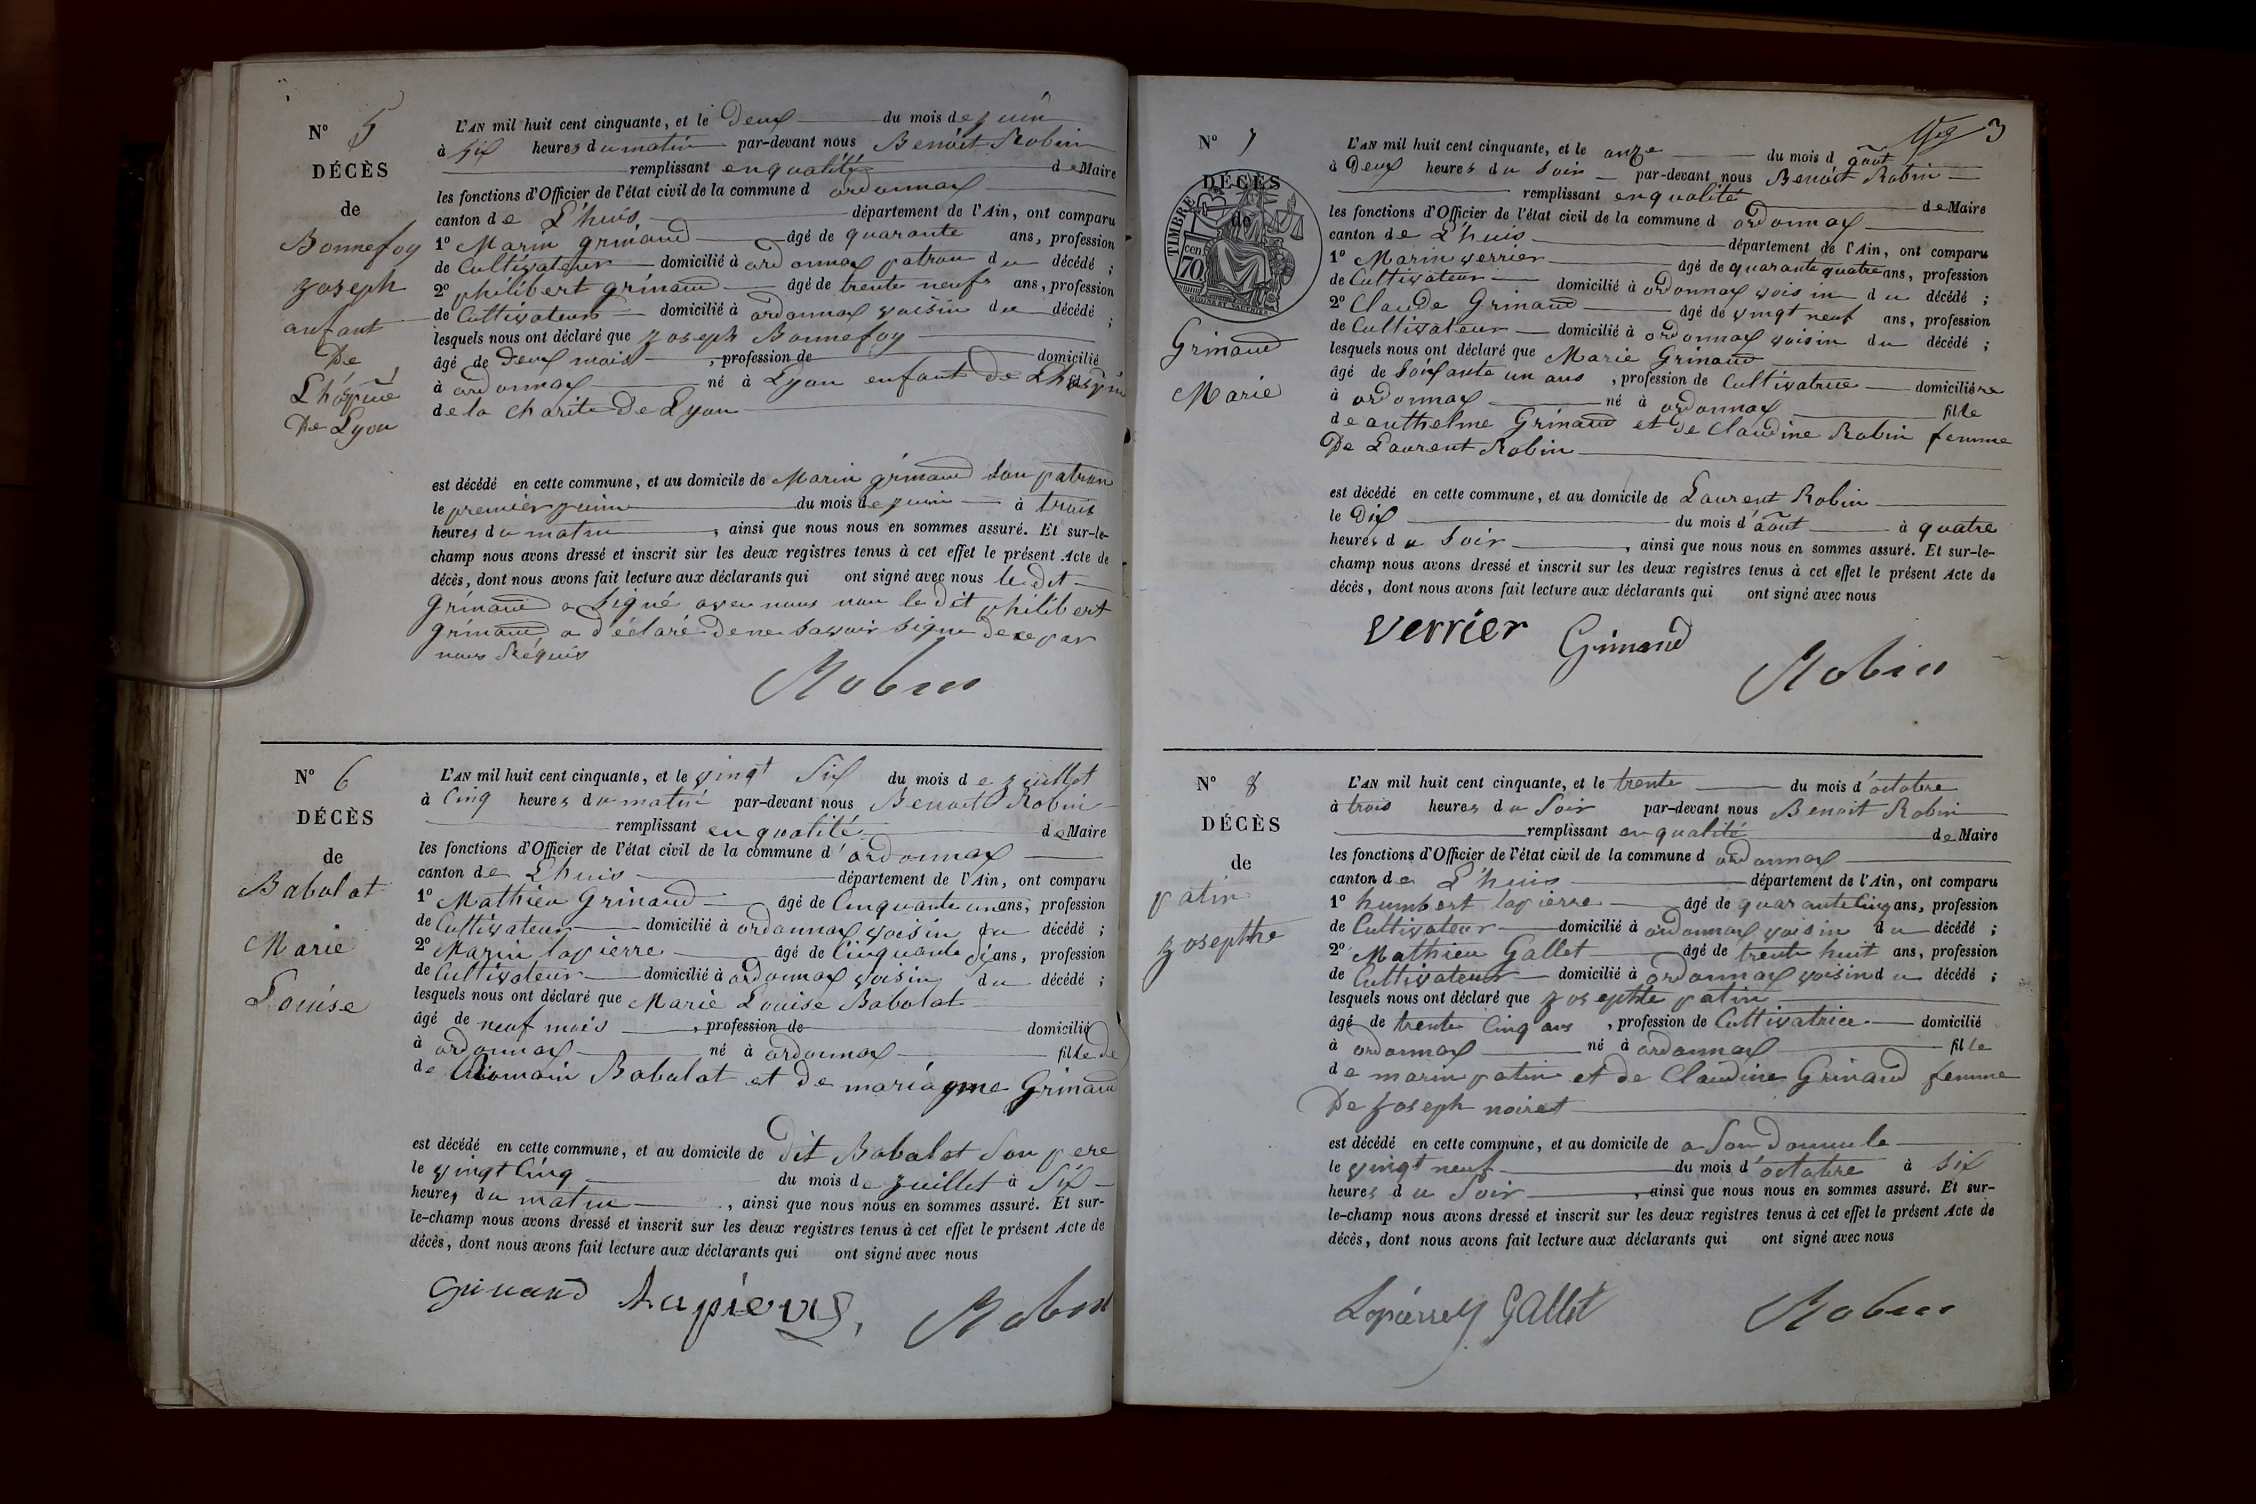 N° 5
DÉCÈS
de
Bonnefoy
Joseph
enfant
De
L'hospice
De Lyon
L'AN mil huit cent cinquante, et le Deux du mois de juin
à six heures du matin par-devant nous Benoit Robin
remplissant en qualité de Maire
les fonctions d'Officier de l'état civil de la commune d ordonnax
canton de L'huis département de l'Ain, ont comparu
1° Marin grinand âgé de quarante ans, profession
de Cultivateur domicilié à ordonnax patron du décédé ;
2° philibert grinand âgé de trente neuf ans, profession
de Cultivateur domicilié à ordonnax voisin du décédé ;
lesquels nous ont déclaré que Joseph Bonnefoy
âgé de Deux mois , profession de domicilié
à ordonnax né à Lyon enfant de L'hospice
de la charite De Lyon
est décédé en cette commune, et au domicile de Marin grinand son patron
le premier juin du mois de juin à trois
heures du matin , ainsi que nous nous en sommes assuré. Et sur-le-
champ nous avons dressé et inscrit sur les deux registres tenus à cet effet le présent Acte de
décès, dont nous avons fait lecture aux déclarants qui ont signé avec nous le dit
grinand a signé avec nous non le dit philibert
grinand a déclaré de ne savoir signe de ce par
nous Réquis
Robin
N° 6
DÉCÈS
de
Babolat
Marie
Louise
L'AN mil huit cent cinquante, et le vingt six du mois de juillet
à cinq heures du matin par-devant nous Benoit Robin
remplissant en qualité de Maire
les fonctions d'Officier de l'état civil de la commune d'ordonnax
canton de L'huis département de l'Ain, ont comparu
1° Mathieu Grinand âgé de Cinquante un ans, profession
de Cultivateur domicilié à ordonnax voisin du décédé ;
2° Marin lapierre âgé de Cinquante ans, profession
de Cultivateur domicilié à ordonnax voisin du décédé ;
lesquels nous ont déclaré que Marie Louise Babolat
âgé de neuf mois , profession de domicilié
à ordonnax né à ordonnax fille de
de Romain Babolat et de Grinand
est décédé en cette commune, et au domicile de dit Babolat son pere
le vingt cinq du mois de juillet à six
heures du matin , ainsi que nous nous en sommes assuré. Et sur-
le-champ nous avons dressé et inscrit sur les deux registres tenus à cet effet le présent Acte de
décès, dont nous avons fait lecture aux déclarants qui ont signé avec nous
Grinand Lapierre Robin
3
N° 7
DÉCÈS
de
TIMBRE
70 cen
Grinand
Marie
L'AN mil huit cent cinquante, et le onze du mois d août
à Deux heures du soir par-devant nous Benoit Robin
remplissant en qualité de Maire
les fonctions d'Officier de l'état civil de la commune d ordonnax
canton de L'huis département de l'Ain, ont comparu
1° Marin verrier âgé de quarante quatre ans, profession
de Cultivateur domicilié à ordonnax voisin du décédé ;
2° Claude Grinand âgé de vingt neuf ans, profession
de Cultivateur domicilié à ordonnax voisin du décédé ;
lesquels nous ont déclaré que Marie Grinand
âgé de soixante un ans , profession de Cultivatrice domiciliére
à ordonnax né à ordonnax fille
de anthelme Grinand et de Claudine Robin femme
De Laurent Robin
est décédé en cette commune, et au domicile de Laurent Robin
le Dix du mois d'août à quatre
heures du soir , ainsi que nous nous en sommes assuré. Et sur-le-
champ nous avons dressé et inscrit sur les deux registres tenus à cet effet le présent Acte de
décès, dont nous avons fait lecture aux déclarants qui ont signé avec nous
verrier Grinand
Robin
N° 8
DÉCÈS
de
patin
Josephte
L'AN mil huit cent cinquante, et le trente du mois d'octobre
à trois heures du soir par-devant nous Benoit Robin
remplissant en qualité de Maire
les fonctions d'Officier de l'état civil de la commune d ordonnax
canton de L'huis département de l'Ain, ont comparu
1° humbert lapierre âgé de quarante cinq ans, profession
de Cultivateur domicilié à ordonnax voisin du décédé ;
2° Mathieu Gallet âgé de trente huit ans, profession
de Cultivateur domicilié à ordonnax voisin du décédé ;
lesquels nous ont déclaré que Josephte patin
âgé de trente cinq ans , profession de Cultivatrice domicilié
à ordonnax né à ordonnax fille
de marin patin et de Claudine Grinand femme
De Joseph noiret
est décédé en cette commune, et au domicile de a son domicile
le vingt neuf du mois d'octobre à six
heures du soir , ainsi que nous nous en sommes assuré. Et sur-
le-champ nous avons dressé et inscrit sur les deux registres tenus à cet effet le présent Acte de
décès, dont nous avons fait lecture aux déclarants qui ont signé avec nous
Lapierre Gallet Robin